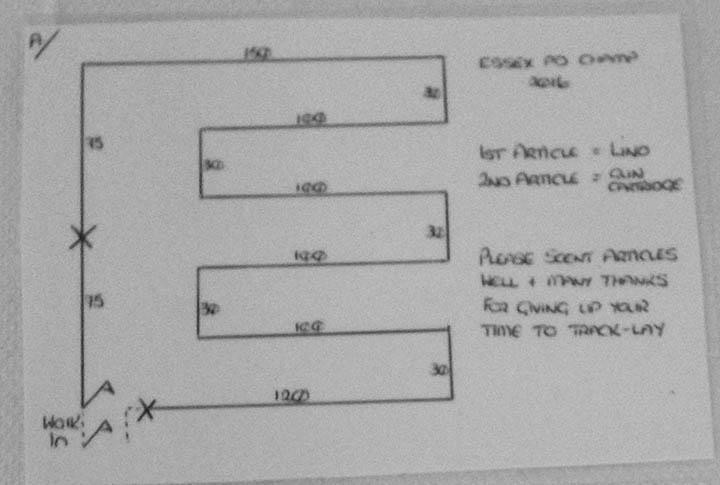 A/
150
ESSEX PD CHAMP
2016
75
30
100
30
100
1ST ARTICLE = LINO
2ND ARTICLE = GUN
CARTRIDGE
30
100
75
30
100
PLEASE SCENT ARTICLES
WELL + MANY THANKS
FOR GIVING UP YOUR
TIME TO TRACK-LAY
30
120
WALK
IN